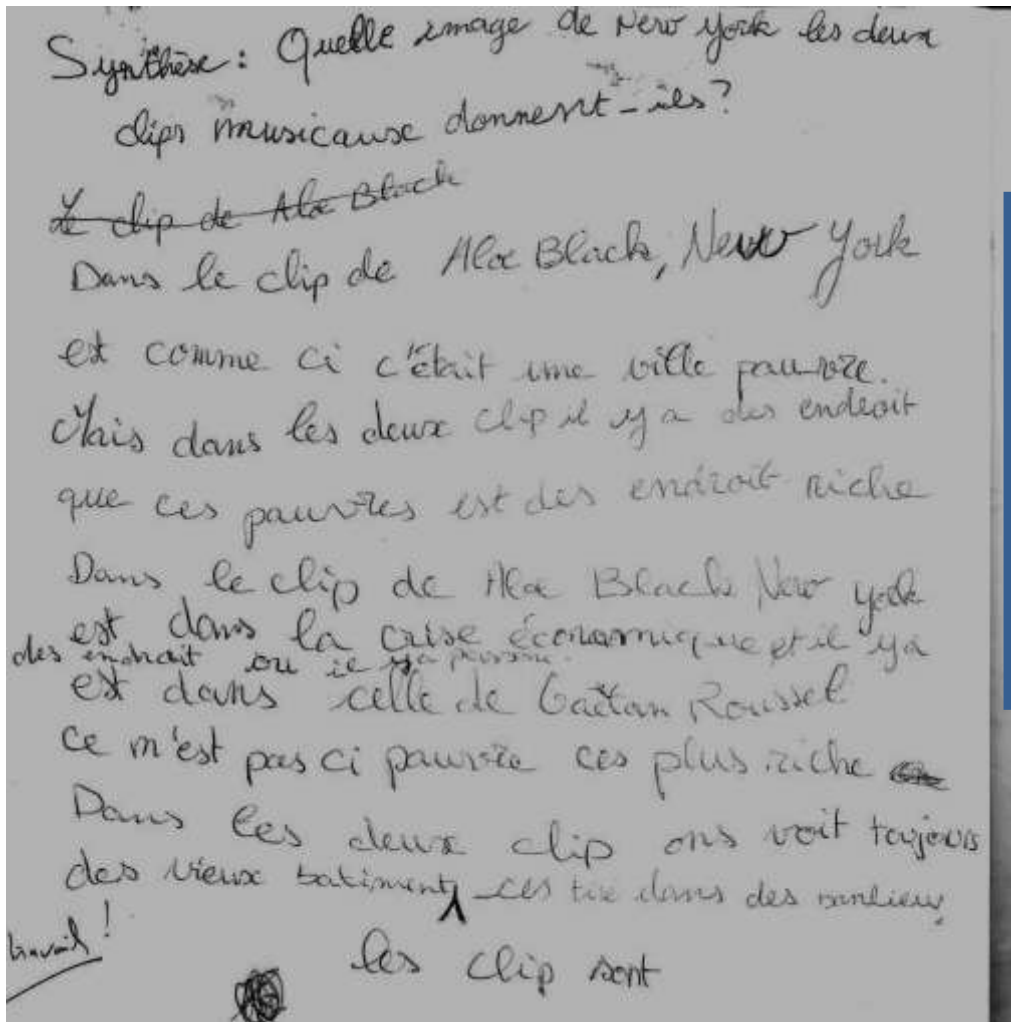 Synthèse : Quelle image de New York les deux
clips musicause donnent-ils?
Le clip de Aloe Black
Dans le clip de Aloe Black, New York
est comme ci c'était une ville pauvre.
Mais dans les deux clip il y a des endroit
que ces pauvres est des endroit riche
Dans le clip de Aloe Black New york
est dans la crise économique et il y a
des endrait ou il y a personne.
est dans celle de Gaëtan Roussel
ce n'est pas ci pauvre ces plus riche
Dans les deux clip ons voit toujours
des vieux batiment ces dans des
travail !
les clip sont